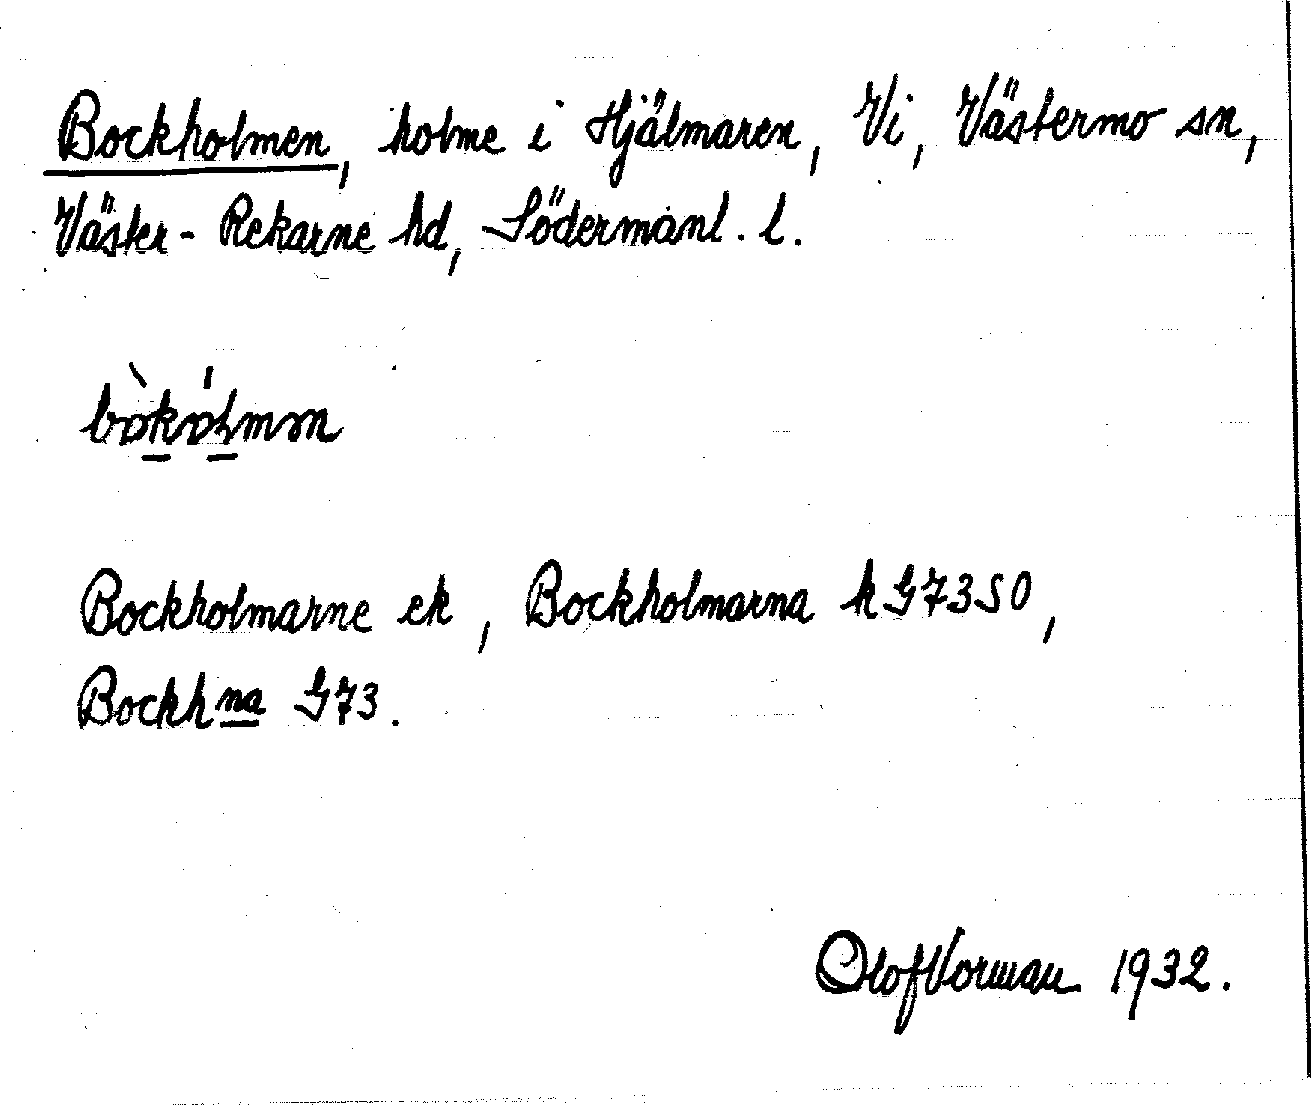 Bockholmen, holme i Hjälmaren, Vi, Västermo sn,
Väster-Rekarne hd, Södermanl. l.
bòkólmm
Bockholmarne ek, Bockholmarna k G7350,
Bockhna G73.
Olof Vorman 1932.